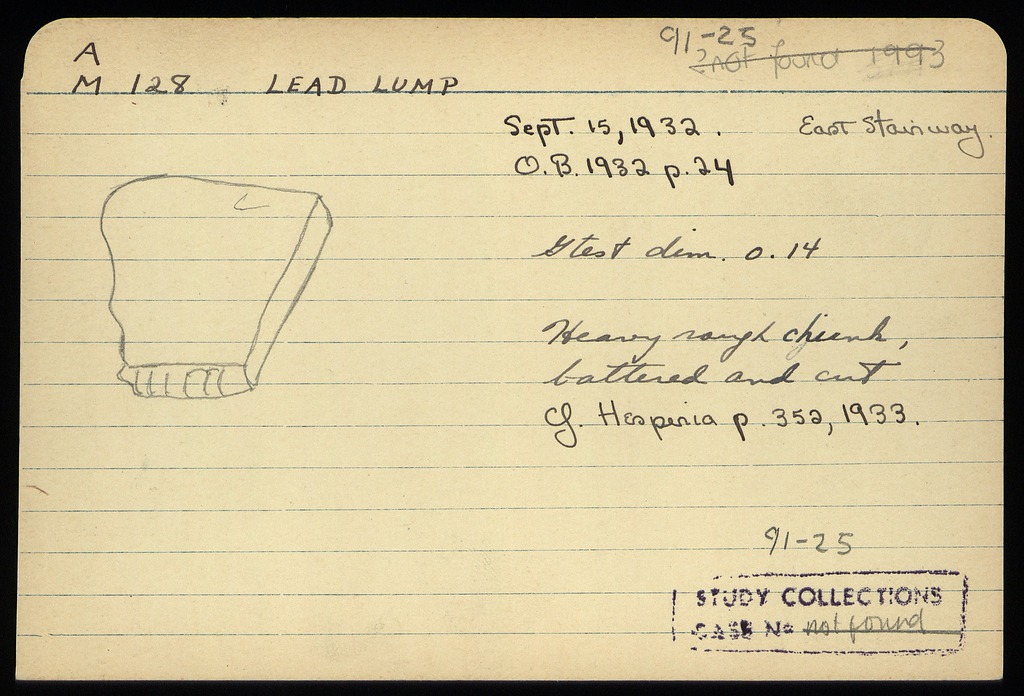 91-25
not found 1993
A
M 128 LEAD LUMP
Sept. 15, 1932. East Stairway.
O.B. 1932 p. 24
Gtest dim. 0.14
Heavy rough chunk,
battered and cut
Cf. Hesperia p. 352, 1933.
91-25
STUDY COLLECTIONS
CASE No not found